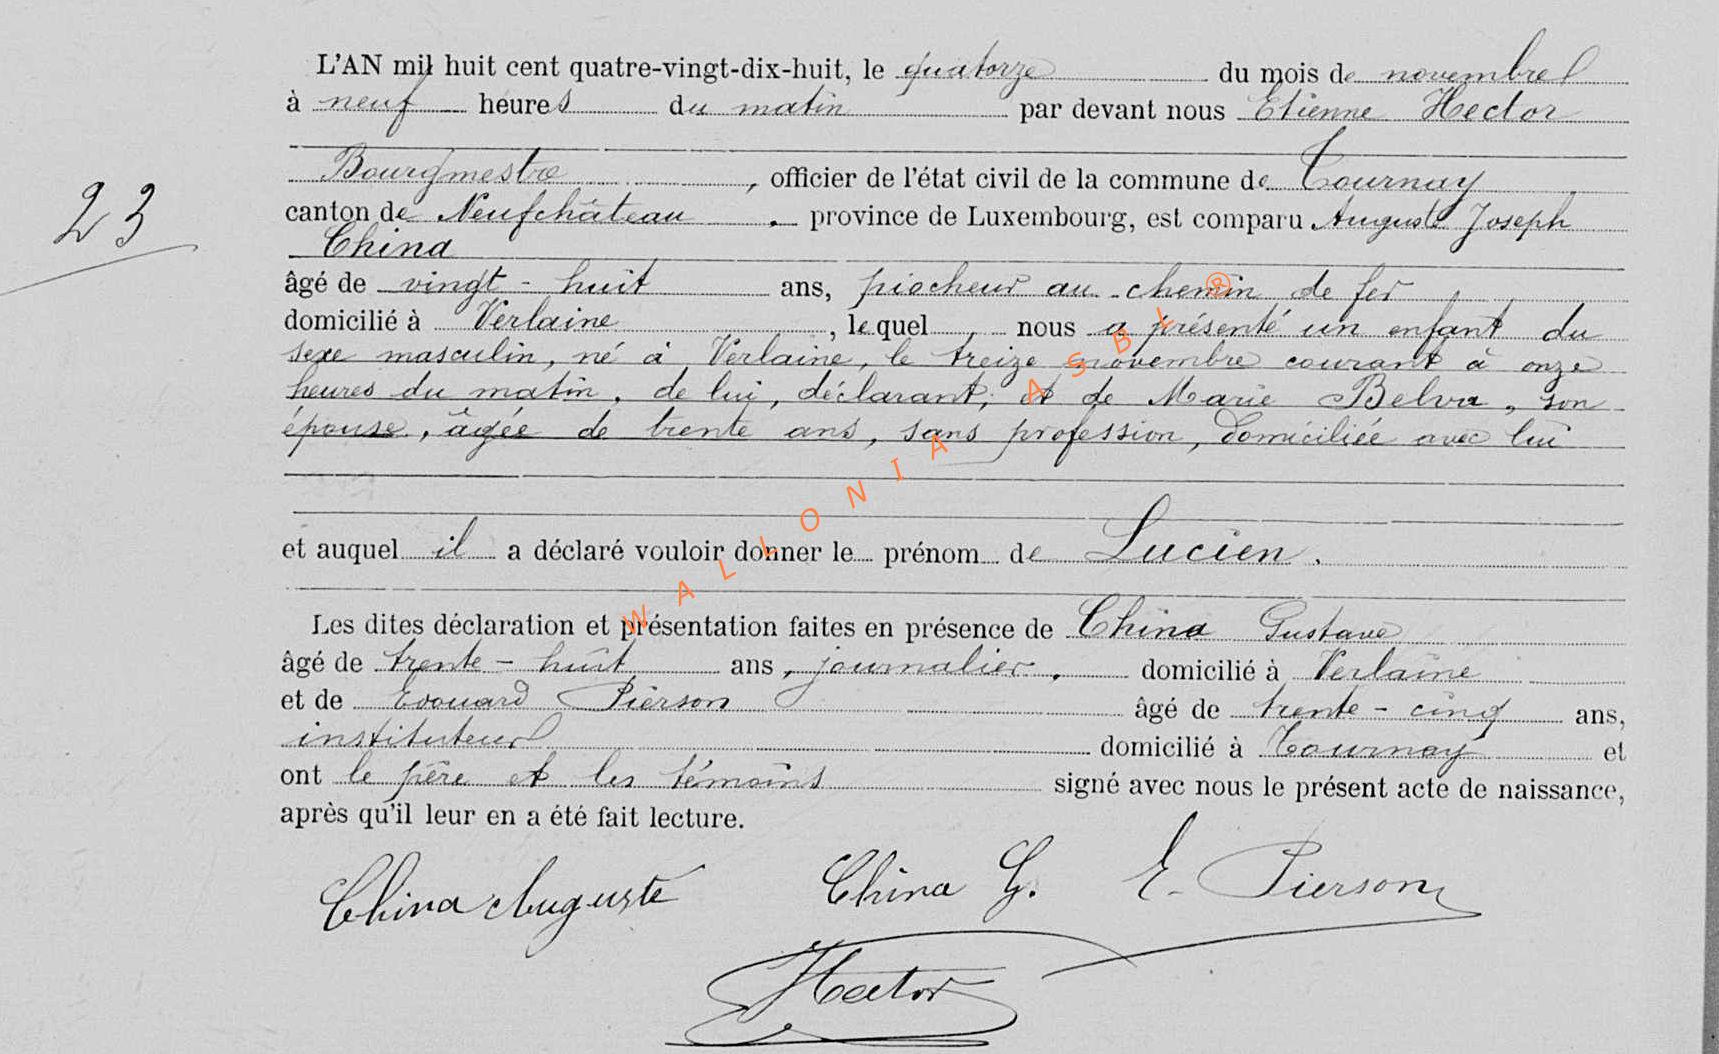 L'AN mil huit cent quatre-vingt-dix-huit, le quatorze du mois de novembre
à neuf heures du matin par devant nous Etienne Hector
Bourgmestre, officier de l'état civil de la commune de Tournay
23
canton de Neufchâteau, province de Luxembourg, est comparu Auguste Joseph
China
âgé de vingt-huit ans, piocheur au chemin de fer
domicilié à Verlaine, lequel nous a présenté un enfant du
sexe masculin, né à Verlaine, le treize novembre courant à onze
heures du matin, de lui, déclarant, et de Marie Belva, son
épouse, âgée de trente ans, sans profession, domiciliée avec lui
et auquel il a déclaré vouloir donner le prénom de Lucien.
Les dites déclaration et présentation faites en présence de China Gustave
âgé de trente-huit ans, journalier, domicilié à Verlaine
et de Edouard Pierson âgé de trente-cinq ans,
instituteur domicilié à Tournay et
ont le père et les témoins signé avec nous le présent acte de naissance,
après qu'il leur en a été fait lecture.
China Auguste China G. E. Pierson
Hector
WALLONIA ASBL ®